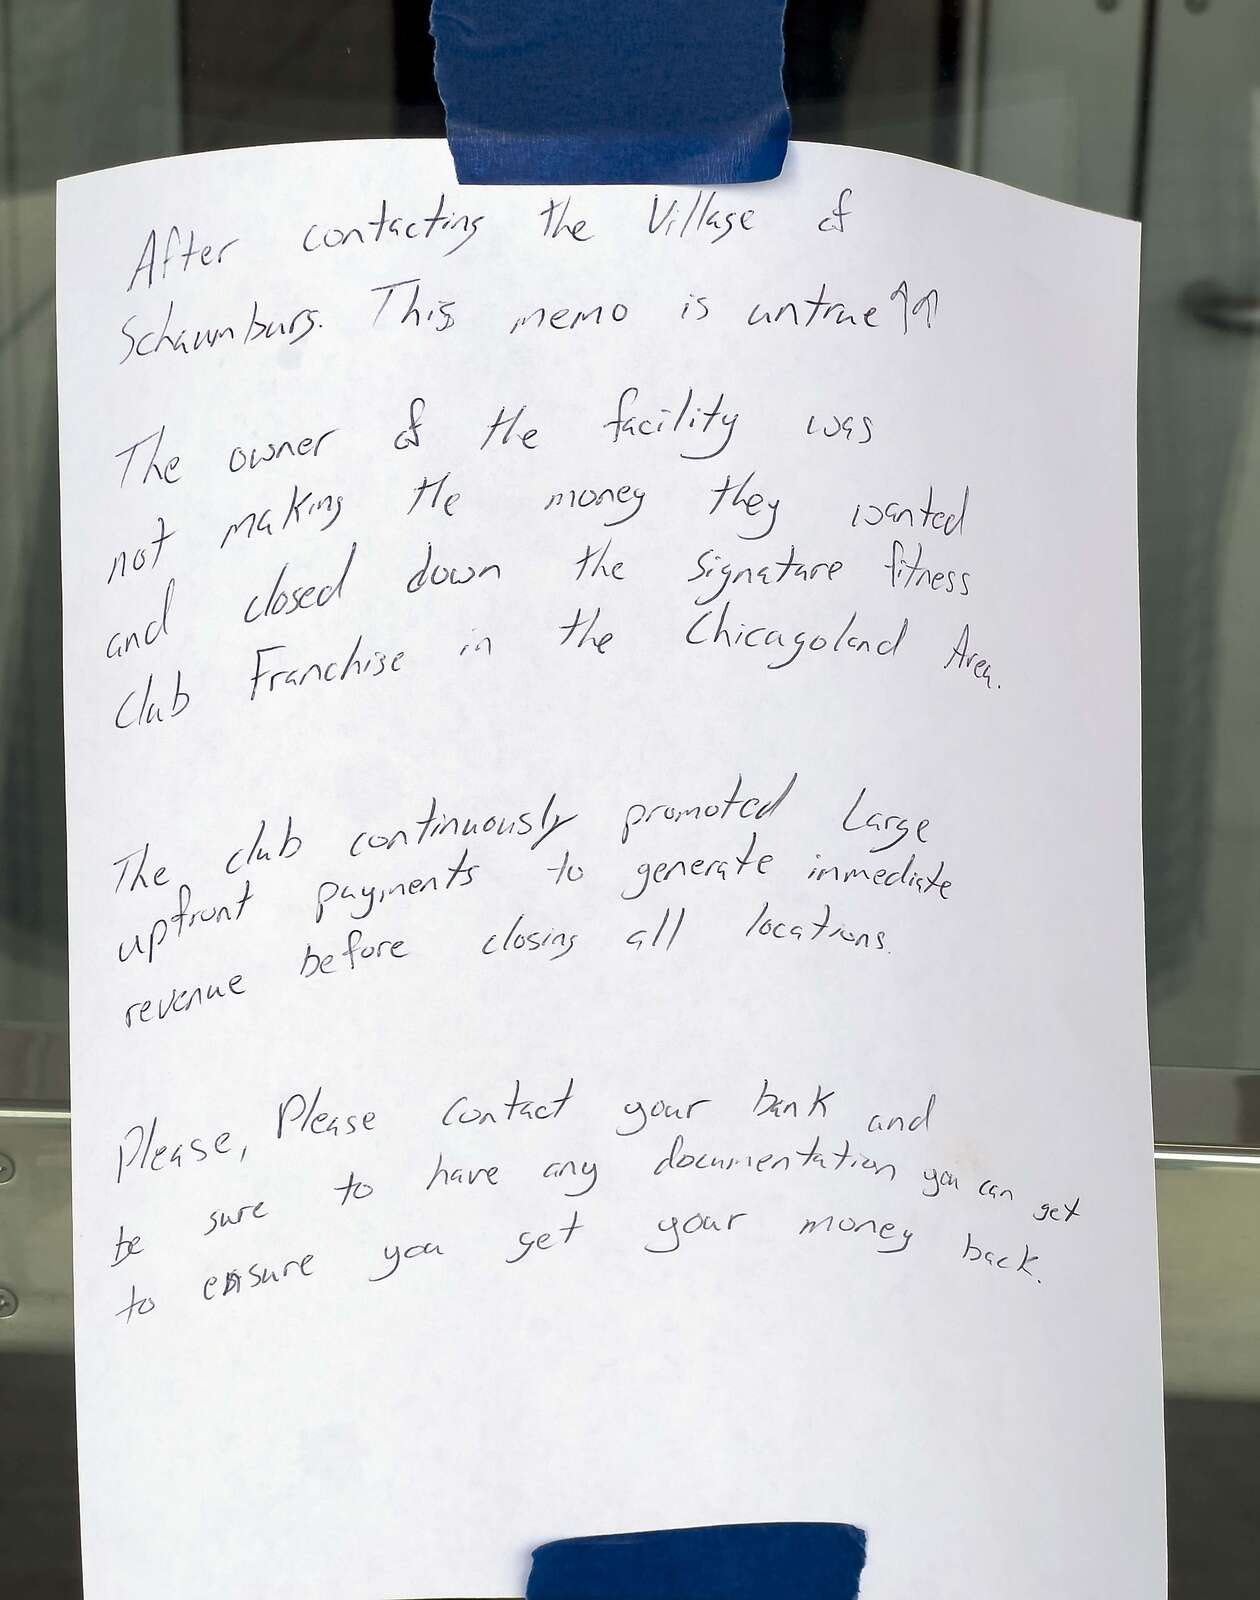 After contacting the Village of
Schaumburg. This memo is untrue ↑↑
The owner of the facility was
not making the money they wanted
and closed down the signature fitness
Club Franchise in the Chicagoland Area.
The club continuously promoted Large
upfront payments to generate immediate
revenue before closing all locations.
Please, Please contact your bank and
be sure to have any documentation you can get
to ensure you get your money back.